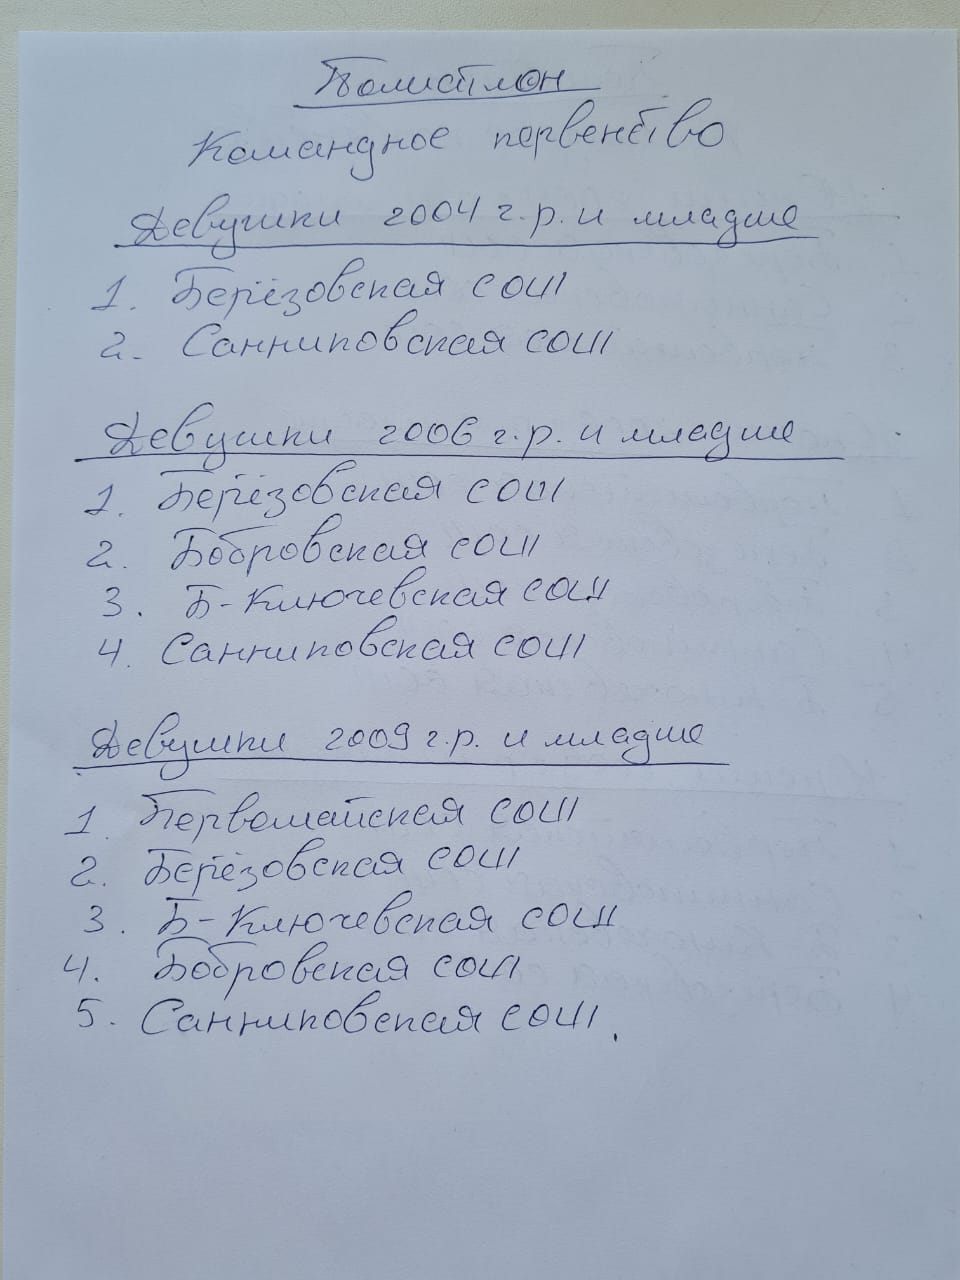 Полиатлон
Командное первенство
Девушки 2004 г.р. и младше
1. Берёзовская СОШ
2. Санниковская СОШ
Девушки 2006 г.р. и младше
1. Берёзовская СОШ
2. Бобровская СОШ
3. Б-Ключевская СОШ
4. Санниковская СОШ
Девушки 2009 г.р. и младше
1. Первомайская СОШ
2. Берёзовская СОШ
3. Б-Ключевская СОШ
4. Бобровская СОШ
5. Санниковская СОШ.